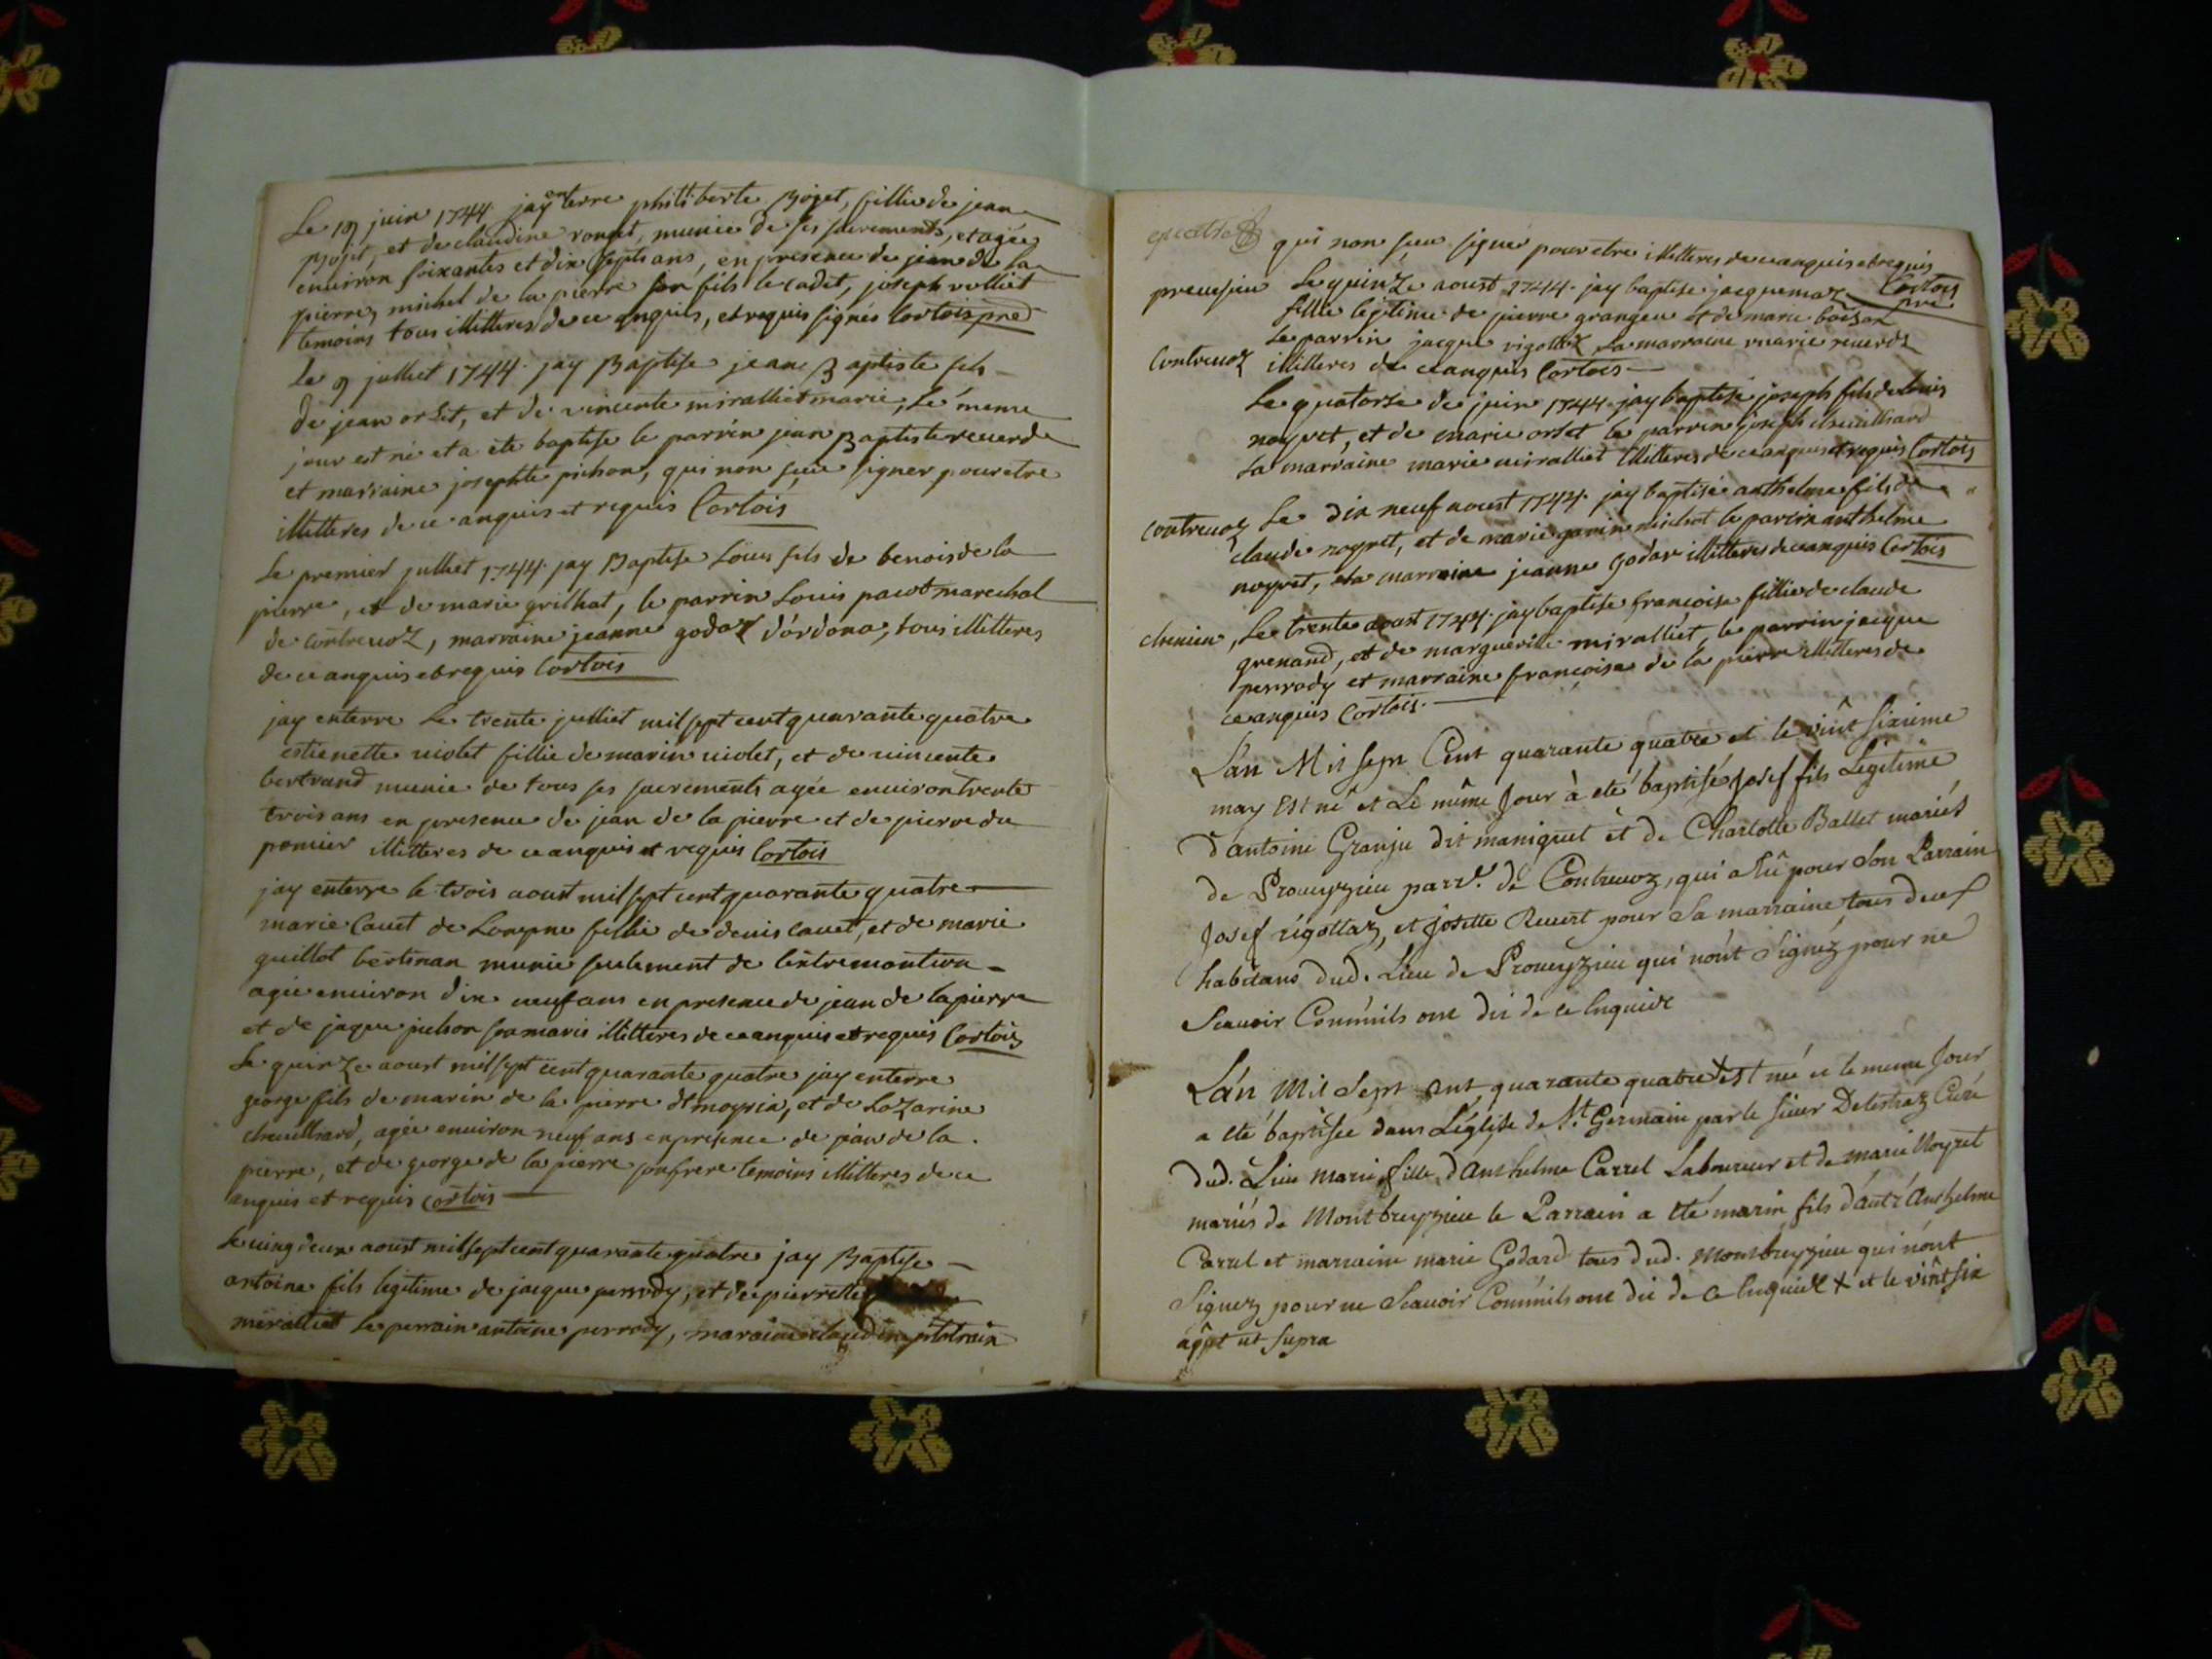 Le 19 juin 1744 jay enterre philiberte Bojet, fillie de jean
Bojet, et de claudine ronget, munie de ses sacrements, et agée
environ soixantes et dix septs ans, en presence de jean de la
pierre, michel de la pierre son fils le cadet, joseph rolliet
temoins tous illitteres de ce anquis, et requis signés Cortois pred
Le 9 julliet 1744 jay Baptise jean Baptiste fils
de jean orset, et de vincente miralliet marie, le meme
jour est né et a ete baptise le parrin jean Baptiste reuerde
et marraine josephte pichon, qui non sceu signer pour etre
illitteres de ce anquis et requis Cortois
Le premier julliet 1744 jay Baptise Louis fils de benois de la
pierre, et de marie grilliat, le parrin Louis pacot marechal
de contreuoz, marraine jeanne godaz dórdona, tous illitteres
de ce anquis et requis Cortois
jay enterre Le trente julliet mil sept cent quarante quatre
estienette uiolet fillie de marin uiolet, et de uincente
bertrand munie de tous ses sacrements agée enuiron trente
trois ans en presence de jean de la pierre et de pierre du
pomier illitteres de ce anquis et requis Cortois
jay enterre le trois aoust mil sept cent quarante quatre
marie Cauet de Lompne fillie de denis cauet, et de marie
guillot bertinan munie seulement de lextremontion
agée enuiron dix neuf ans en presence de jean de la pierre
et de jaque pichon son marie illitteres de ce anquis et requis Cortois
Le quinze aoust mil sept cent quarante quatre jay enterre
george fils de marin de la pierre dt moyria, et de Lozarine
cheuilliard, agée enuiron neuf ans en presence de jean de la
pierre, et de george de la pierre son frere temoins illitteres de ce
anquis et requis Cortois
Le uing deux aoust mil sept cent quarante quatre jay Baptise
antoine fils legitime de jacque perrody, et de pierrette
miralliet le perrain antoine perrody, maraine claudine
qui non sceu signé pour etre illitteres de ce anquis et requis
Cortois pre
preuesieu Le quinze aoust 1744 jay baptise jacquemaz
fillie lejitime de pierre grangeu et de marie boison
Le parrin jacque rigottaz La marraine marie reuerds
Contreuoz illitteres de ce anquis Cortois
Le quatorse de juin 1744 jay baptisé joseph fils de louis
noyret, et de marie orset le parrin joseph cheuilliard
La marraine marie miralliet illitteres de ce anquis et requis Cortois
contreuoz Le dix neuf aoust 1744 jay baptisé anthelme fils de
claude noyret, et de marie garin michot le parrin anthelme
noyret, et a marraine jeanne godar illitteres de ce anquis Cortois
cheuieu, Le trente aoust 1744 jay baptise francoise fillie de claude
grenand, et de margueritte miralliet, le parrin jacque
perrody et marraine francoise de la pierre illitteres de
ce anquis Cortois
L'an Mil sept Cent quarante quatre et le vint sixieme
may Est né et Le même Jour à eté baptisé Josef fils Légitime
D'antoine Granju dit maniguet et de Charlotte Ballet mariés
de Proueyzieu parr.e de Contreuoz, qui a Eû pour Son Parrain
Josef rigottaz, et Josette Reuert pour Sa marraine tous deux
habitans dud. Lieu de Proueyzieu qui n'ont Signéz pour ne
Scauoir Comm'ils ont dit de ce Enquise
L'an Mil Sept cent quarante quatre X est née et le meme Jour
a eté baptisée dans L'église de St Germain par le sieur Delestraz Curé
dud. Lieu Marie fille d'Anthelme Carrel Laboureur et de Marie Noyret
mariés de Montbreyzieu le Parrain a eté marin fils d'autr' Anthelme
Carrel et marraine marie Godard tous dud. Montbreyzieu qui n'ont
Signez pour ne Scauoir Comm'ils ont dit de ce Enquise X et le vint six
ut supra